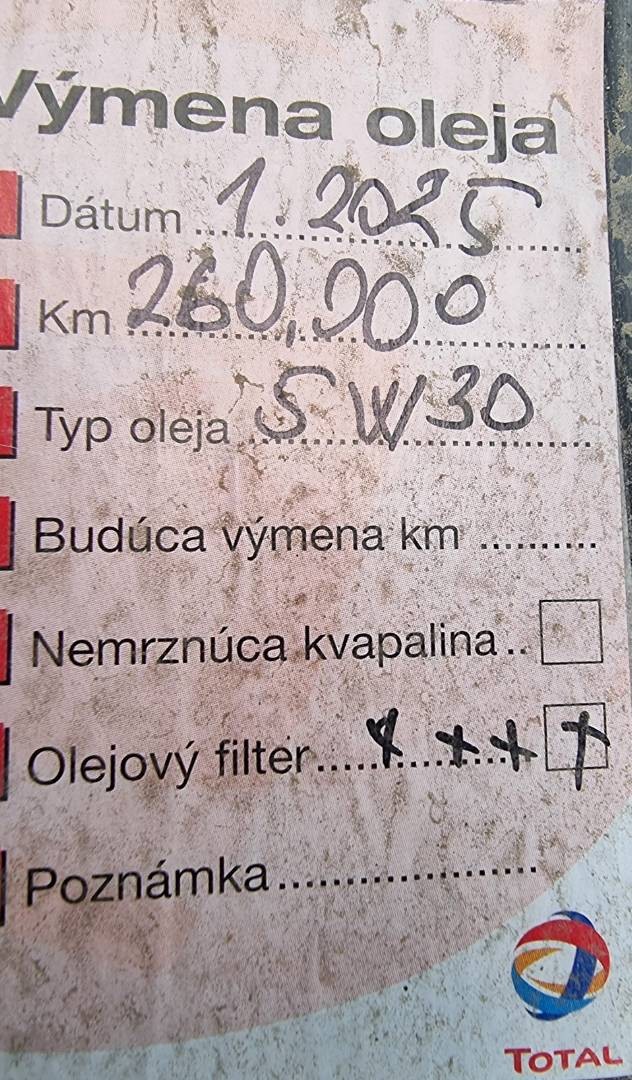 Výmena oleja
Dátum 1.2025
Km 260,000
Typ oleja 5W30
Budúca výmena km ..........
Nemrznúca kvapalina ..
Olejový filter..... x x x x
Poznámka....................
TOTAL